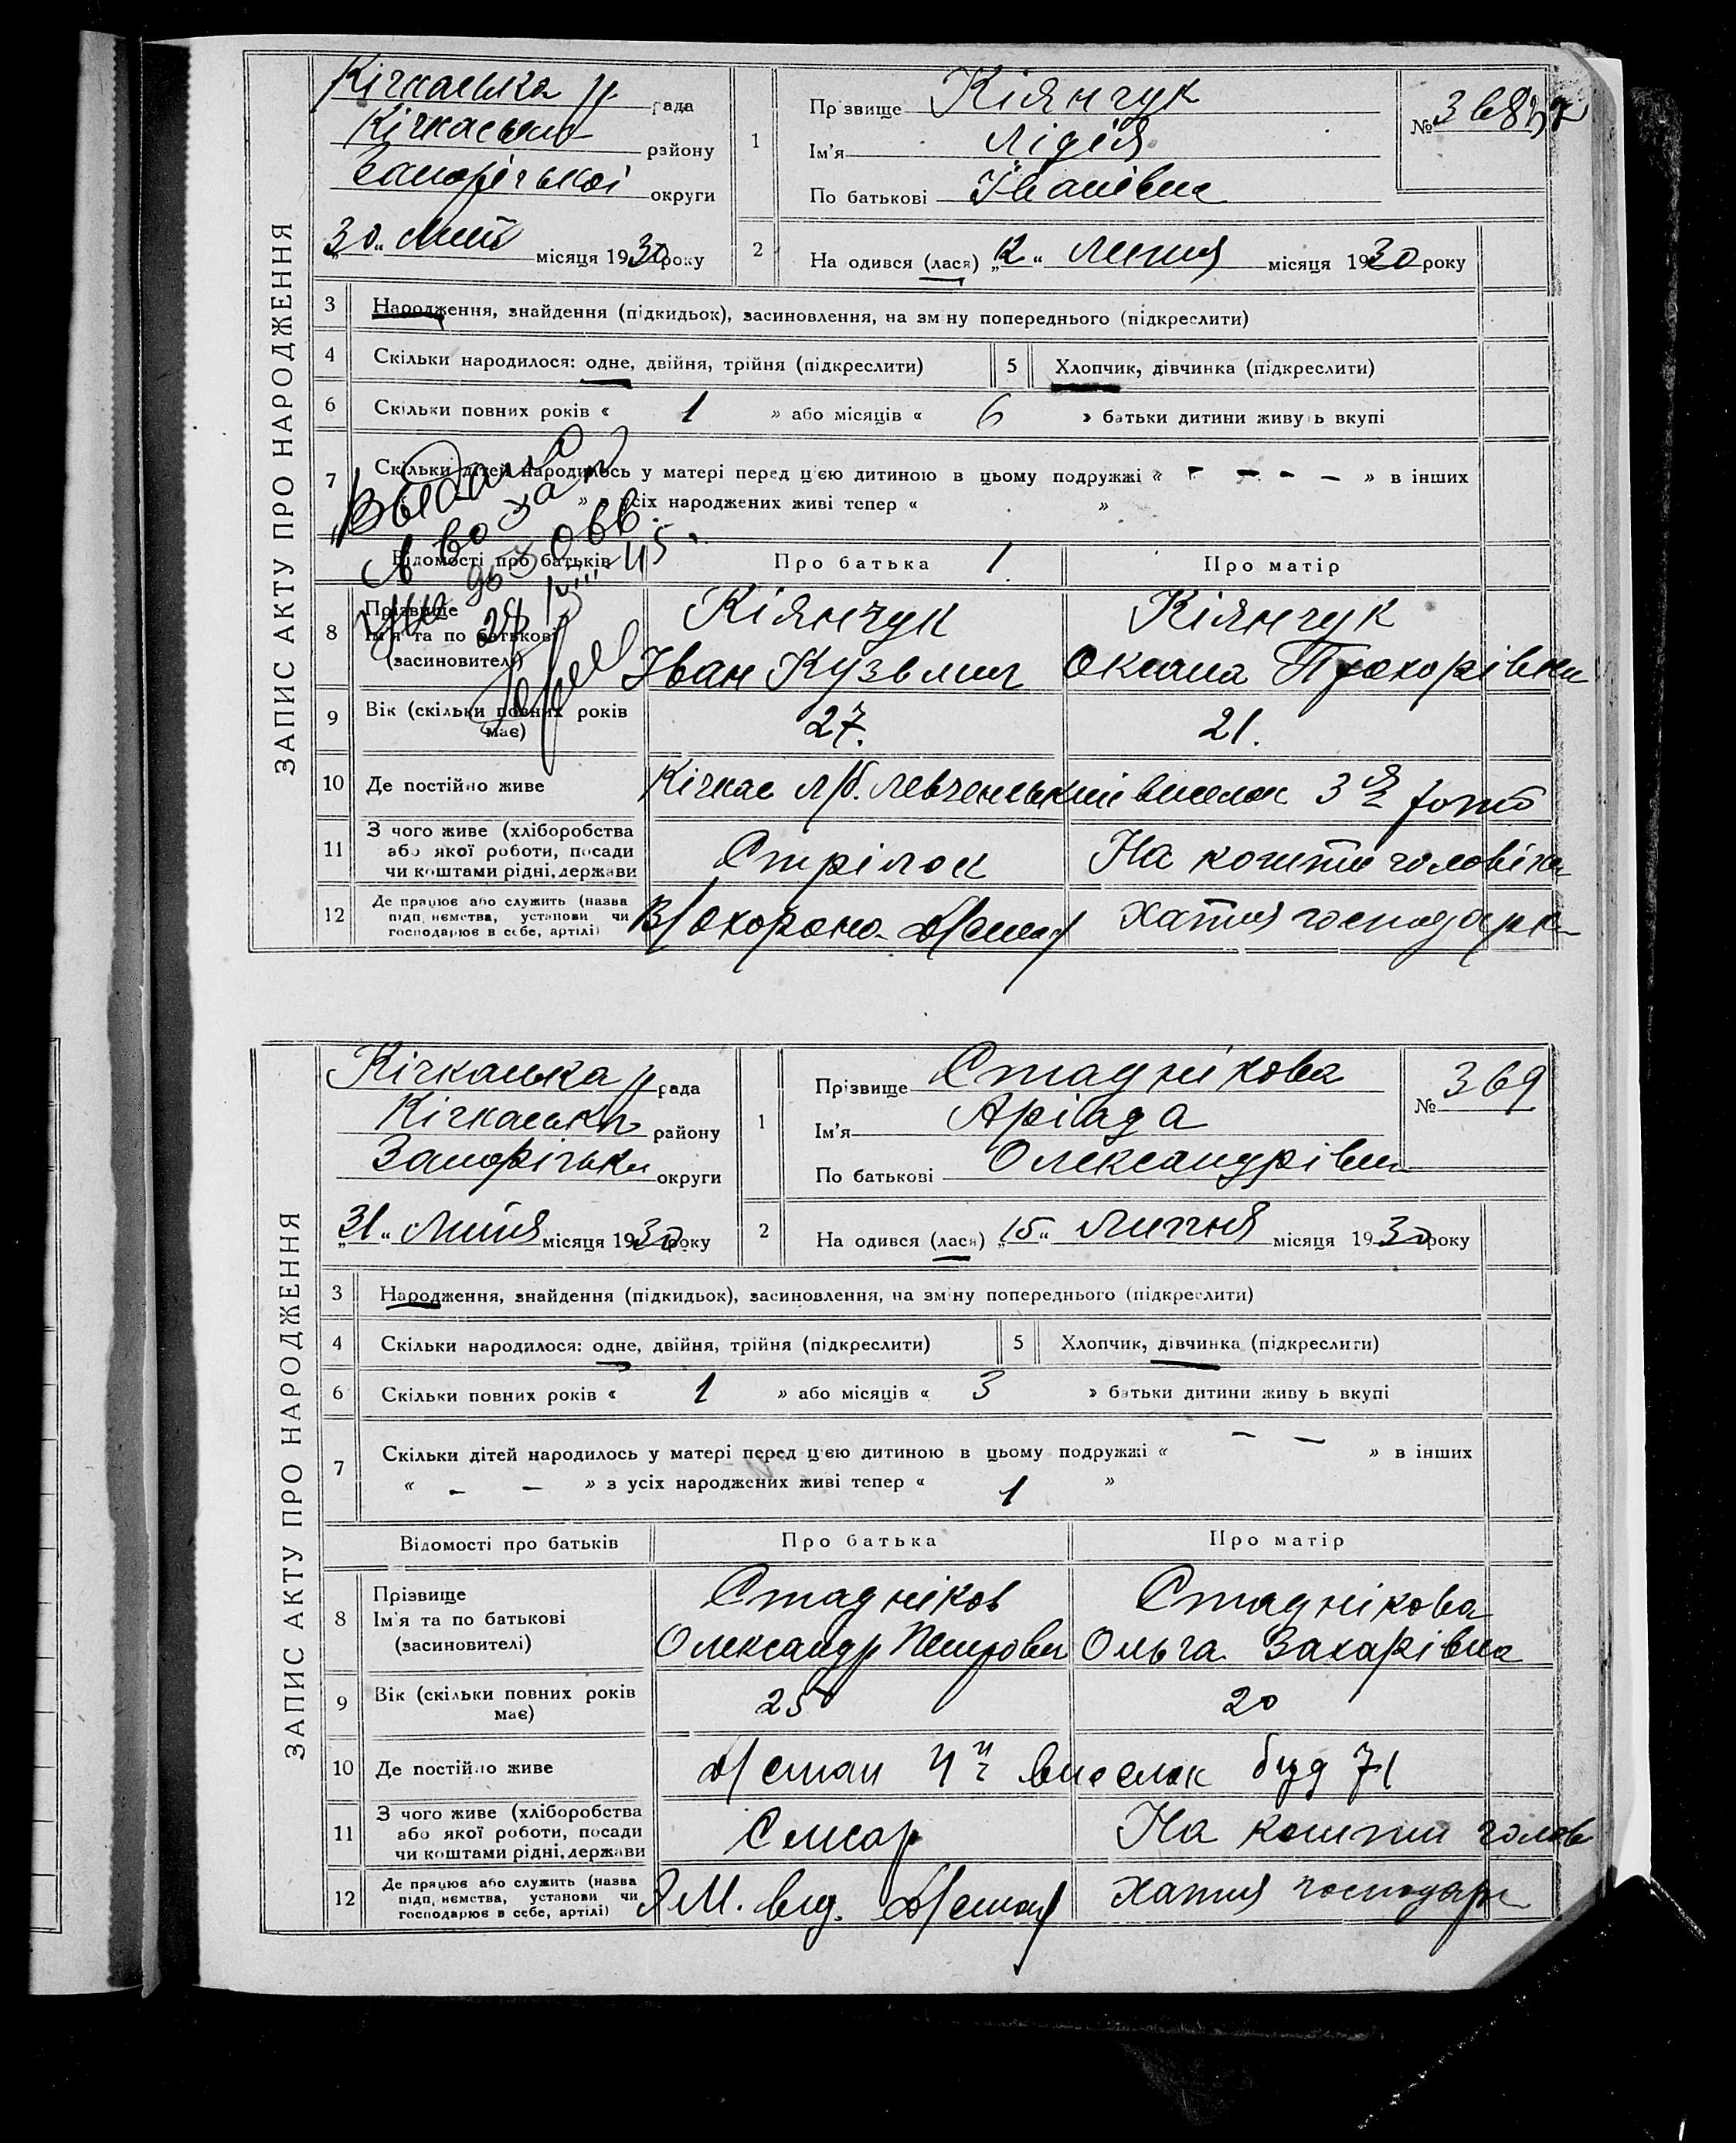 ЗАПИС АКТУ ПРО НАРОДЖЕННЯ
Кічкаська р. рада
Кічкаськ району
Запорізької округи
„30„ Лип місяця 1930 року
1 Прізвище Кіянчук
Ім'я Лідія
По батькові Іванівна
№ 368
2 На одився (лася) „12„ Липня місяця 1930 року
3 Народження, знайдення (підкидьок), засиновлення, на зміну попереднього (підкреслити)
4 Скільки народилося: одне, двійня, трійня (підкреслити) 5 Хлопчик, дівчинка (підкреслити)
6 Скільки повних років « 1 » або місяців « 6 » батьки дитини живу ь вкупі
7 Скільки дітей народилось у матері перед цією дитиною в цьому подружжі « - - - - » в інших
» з усіх народжених живі тепер « »
Відомості про батьків Про батька 1 Про матір
8 Прізвище Ім'я та по батькові (засновителі)
Кіянчук Кіянчук
Іван Кузьмич Оксана Прохорівна
9 Вік (скільки повних років має) 27. 21.
10 Де постійно живе Кічкас л/б. Левченський виселок 3
11 З чого живе (хліборобства або якої роботи, посади чи коштами рідні, держави Стрілок На кошти чоловіка
12 Де працює або служить (назва підп.немства, установи чи господарює в себе, артілі) В/Охорона Хатня господарка
ЗАПИС АКТУ ПРО НАРОДЖЕННЯ
Кічкаська р. рада
Кічкаськ району
Запорізьки округи
„31„ Липня місяця 1930 року
1 Прізвище Стаднікова
Ім'я Аріада
По батькові Олександрівна
№ 369
2 На одився (лася) „15„ Липня місяця 1930 року
3 Народження, знайдення (підкидьок), засиновлення, на зміну попереднього (підкреслити)
4 Скільки народилося: одне, двійня, трійня (підкреслити) 5 Хлопчик, дівчинка (підкреслити)
6 Скільки повних років « 1 » або місяців « 3 » батьки дитини живу ь вкупі
7 Скільки дітей народилось у матері перед цією дитиною в цьому подружжі « - - » в інших
« - - » з усіх народжених живі тепер « 1 »
Відомості про батьків Про батька Про матір
8 Прізвище Ім'я та по батькові (засиновителі)
Стадніков Стаднікова
Олександр Петрович Ольга Захарівна
9 Вік (скільки повних років має) 25 20
10 Де постійно живе виселок буд 71
11 З чого живе (хліборобства або якої роботи, посади чи коштами рідні, держави Слюсар На кошти чолов
12 Де працює або служить (назва підп.немства, установи чи господарює в себе, артілі) від. Хатня господарк